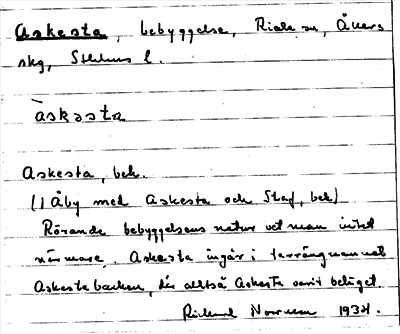 Askesta, bebyggelse, Riala sn, Åkers
skg, Sthlms l.
àskəsta
Askesta, beb.
(1 Åby med Askesta och Staf, beb)
Rörande bebyggelsens natur vet man intet
närmare. Askesta ingår i terrängnamnet
Askestabacken, där alltså Askesta varit beläget.
Rickard Norrman 1934.